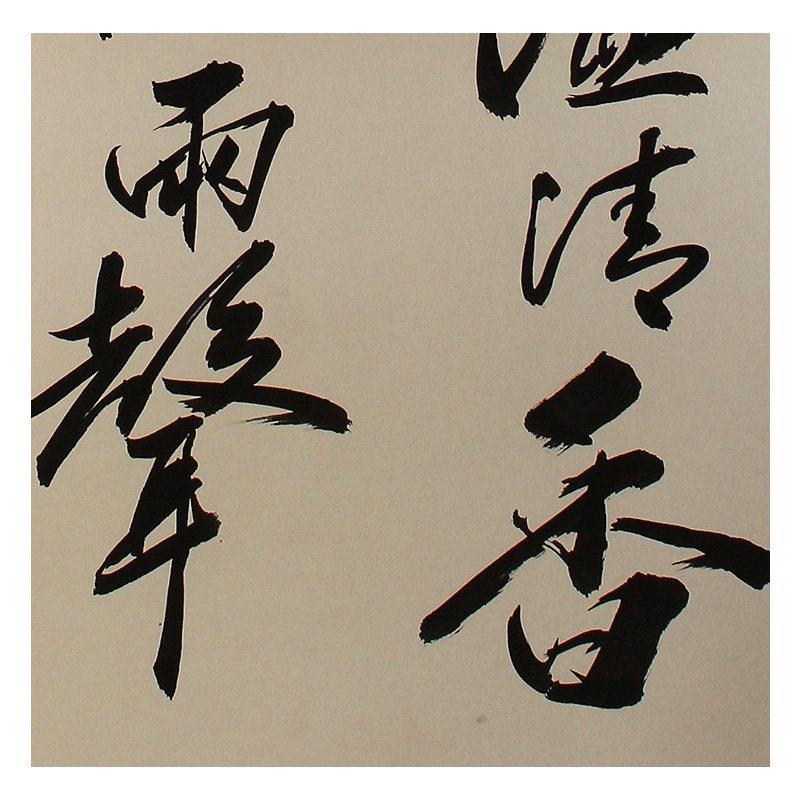 清香
雨聲